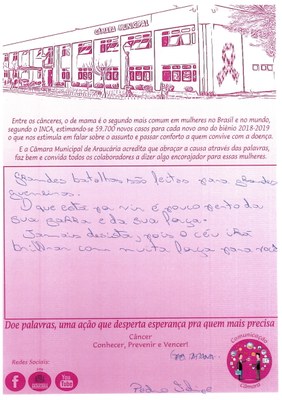 CÂMARA MUNICIPAL
Entre os cânceres, o de mama é o segundo mais comum em mulheres no Brasil e no mundo,
segundo o INCA, estimando-se 59.700 novos casos para cada novo ano do biênio 2018-2019
o que nos estimula em falar sobre o assunto e passar conforto a quem convive com a doença.
E a Câmara Municipal de Araucária acredita que abraçar a causa através das palavras,
faz bem e convida todos os colaboradores a dizer algo encorajador para essas mulheres.
Grandes batalhas são feitas para grandes
guerreiros.
O que está por vir é pouco perto da
sua e da sua força.
Jamais desista, pois o céu irá
brilhar com muita força para você
Doe palavras, uma ação que desperta esperança pra quem mais precisa
Câncer
Conhecer, Prevenir e Vencer!
Redes Sociais:
You Tube
Comunicação
Câmara